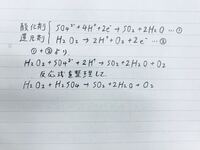 酸化剤 { SO₄²⁻ + 4H⁺ + 2e⁻ → SO₂ + 2H₂O …①
還元剤 { H₂O₂ → 2H⁺ + O₂ + 2e⁻ …②
① + ② より
H₂O₂ + SO₄²⁻ + 2H⁺ → SO₂ + 2H₂O + O₂
反応式を整理して
H₂O₂ + H₂SO₄ → SO₂ + 2H₂O + O₂